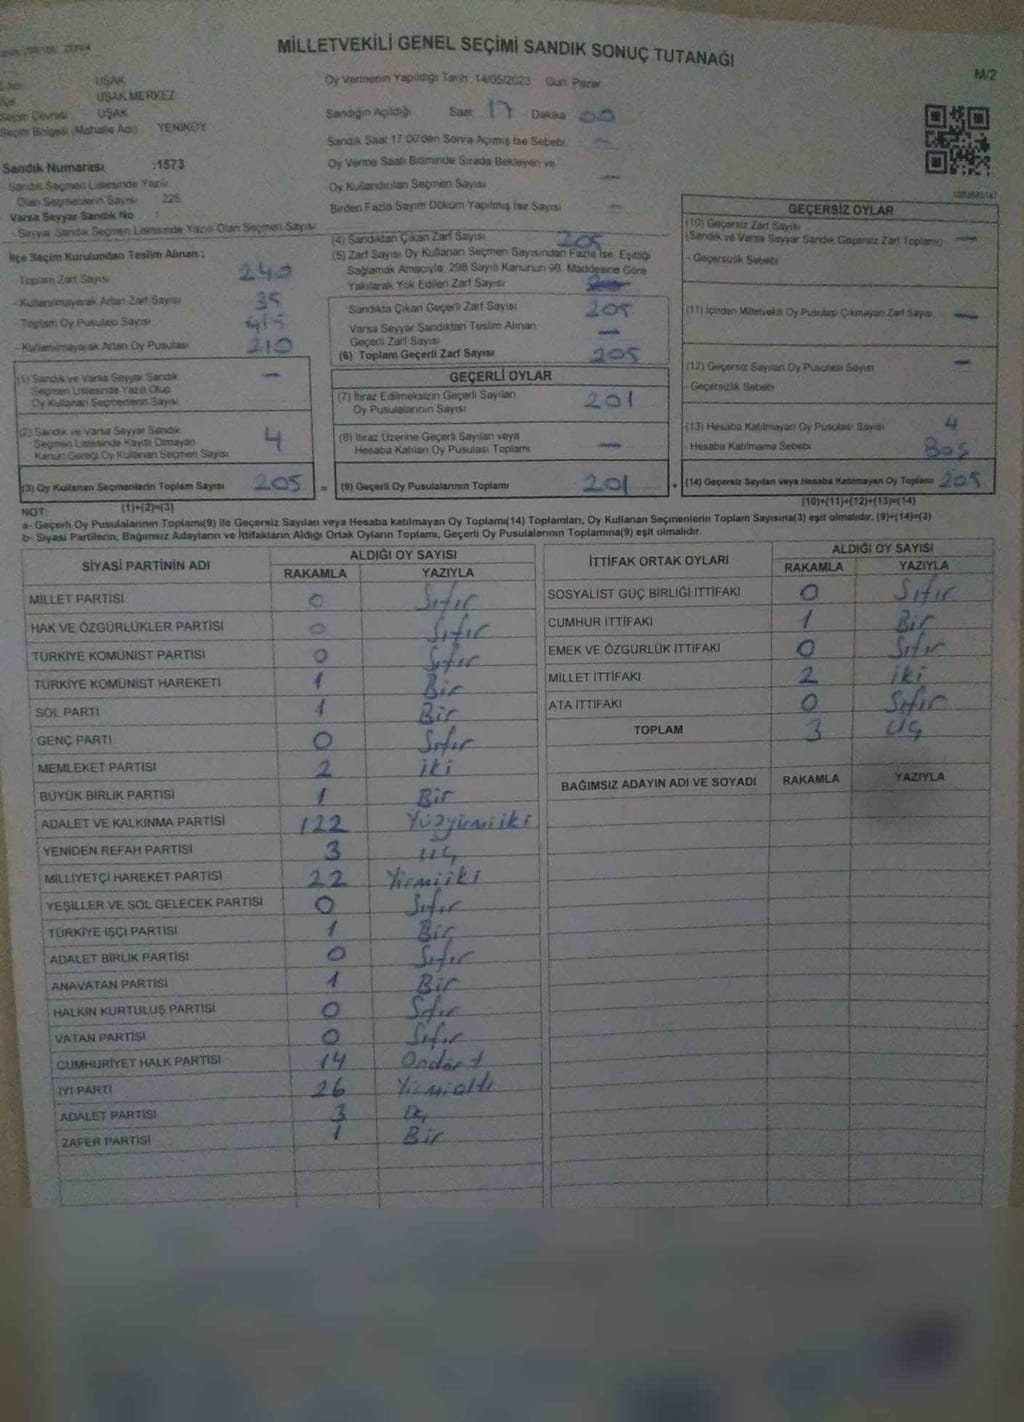 MİLLETVEKİLİ GENEL SEÇİMİ SANDIK SONUÇ TUTANAĞI
M/2
UŞAK
UŞAK MERKEZ
Seçim Çevresi UŞAK
Seçim Bölgesi (Mahalle Adı) YENİKÖY
Oy Vermenin Yapıldığı Tarih 14/05/2023 Gün: Pazar
Sandığın Açıldığı Saat 17 Dakika 00
Sandık Saat 17:00'den Sonra Açılmış İse Sebebi —
Oy Verme Saati Bitiminde Sırada Bekleyen ve
Oy Kullandırılan Seçmen Sayısı —
Birden Fazla Sayım Döküm Yapılmış İse Sayısı —
Sandık Numarası :1573
Sandık Seçmen Listesinde Yazılı
Olan Seçmenlerin Sayısı 225
Varsa Seyyar Sandık No :
Seyyar Sandık Seçmen Listesinde Yazılı Olan Seçmen Sayısı
İlçe Seçim Kurulundan Teslim Alınan ;
Toplam Zarf Sayısı 240
- Kullanılmayarak Artan Zarf Sayısı 35
- Toplam Oy Pusulası Sayısı
- Kullanılmayarak Artan Oy Pusulası 210
(1) Sandık ve Varsa Seyyar Sandık
Seçmen Listesinde Yazılı Olup
Oy Kullanan Seçmenlerin Sayısı —
(2) Sandık ve Varsa Seyyar Sandık
Seçmen Listesinde Kayıtlı Olmayan
Kanun Gereği Oy Kullanan Seçmen Sayısı 4
(3) Oy Kullanan Seçmenlerin Toplam Sayısı 205 =
(1)+(2)=(3)
(4) Sandıktan Çıkan Zarf Sayısı 205
(5) Zarf Sayısı Oy Kullanan Seçmen Sayısından Fazla İse, Eşitliği
Sağlamak Amacıyla, 298 Sayılı Kanunun 98. Maddesine Göre
Yakılarak Yok Edilen Zarf Sayısı
Sandıkta Çıkan Geçerli Zarf Sayısı 205
Varsa Seyyar Sandıktan Teslim Alınan
Geçerli Zarf Sayısı —
(6) Toplam Geçerli Zarf Sayısı 205
GEÇERLİ OYLAR
(7) İtiraz Edilmeksizin Geçerli Sayılan
Oy Pusulalarının Sayısı 201
(8) İtiraz Üzerine Geçerli Sayılan veya
Hesaba Katılan Oy Pusulası Toplamı —
(9) Geçerli Oy Pusulalarının Toplamı 201 +
GEÇERSİZ OYLAR
(10) Geçersiz Zarf Sayısı
(Sandık ve Varsa Seyyar Sandık Geçersiz Zarf Toplamı) —
- Geçersizlik Sebebi
(11) İçinden Milletvekili Oy Pusulası Çıkmayan Zarf Sayısı —
(12) Geçersiz Sayılan Oy Pusulası Sayısı —
- Geçersizlik Sebebi
(13) Hesaba Katılmayan Oy Pusulası Sayısı 4
- Hesaba Katılmama Sebebi Boş
(14) Geçersiz Sayılan veya Hesaba Katılmayan Oy Toplamı 205
(10)+(11)+(12)+(13)=(14)
NOT:
a- Geçerli Oy Pusulalarının Toplamı(9) ile Geçersiz Sayılan veya Hesaba katılmayan Oy Toplamı(14) Toplamları, Oy Kullanan Seçmenlerin Toplam Sayısına(3) eşit olmalıdır. (9)+(14)=(3)
b- Siyasi Partilerin, Bağımsız Adayların ve İttifakların Aldığı Ortak Oyların Toplamı, Geçerli Oy Pusulalarının Toplamına(9) eşit olmalıdır.
SİYASİ PARTİNİN ADI ALDIĞI OY SAYISI
RAKAMLA YAZIYLA
MİLLET PARTİSİ 0 Sıfır
HAK VE ÖZGÜRLÜKLER PARTİSİ 0 Sıfır
TÜRKİYE KOMÜNİST PARTİSİ 0 Sıfır
TÜRKİYE KOMÜNİST HAREKETİ 1 Bir
SOL PARTİ 1 Bir
GENÇ PARTİ 0 Sıfır
MEMLEKET PARTİSİ 2 iki
BÜYÜK BİRLİK PARTİSİ 1 Bir
ADALET VE KALKINMA PARTİSİ 122 Yüzyirmiiki
YENİDEN REFAH PARTİSİ 3 üç
MİLLİYETÇİ HAREKET PARTİSİ 22 Yirmiiki
YEŞİLLER VE SOL GELECEK PARTİSİ 0 Sıfır
TÜRKİYE İŞÇİ PARTİSİ 1 Bir
ADALET BİRLİK PARTİSİ 0 Sıfır
ANAVATAN PARTİSİ 1 Bir
HALKIN KURTULUŞ PARTİSİ 0 Sıfır
VATAN PARTİSİ 0 Sıfır
CUMHURİYET HALK PARTİSİ 14 Ondört
İYİ PARTİ 26 Yirmialtı
ADALET PARTİSİ 3 Üç
ZAFER PARTİSİ 1 Bir
İTTİFAK ORTAK OYLARI ALDIĞI OY SAYISI
RAKAMLA YAZIYLA
SOSYALİST GÜÇ BİRLİĞİ İTTİFAKI 0 Sıfır
CUMHUR İTTİFAKI 1 Bir
EMEK VE ÖZGÜRLÜK İTTİFAKI 0 Sıfır
MİLLET İTTİFAKI 2 iki
ATA İTTİFAKI 0 Sıfır
TOPLAM 3 üç
BAĞIMSIZ ADAYIN ADI VE SOYADI RAKAMLA YAZIYLA